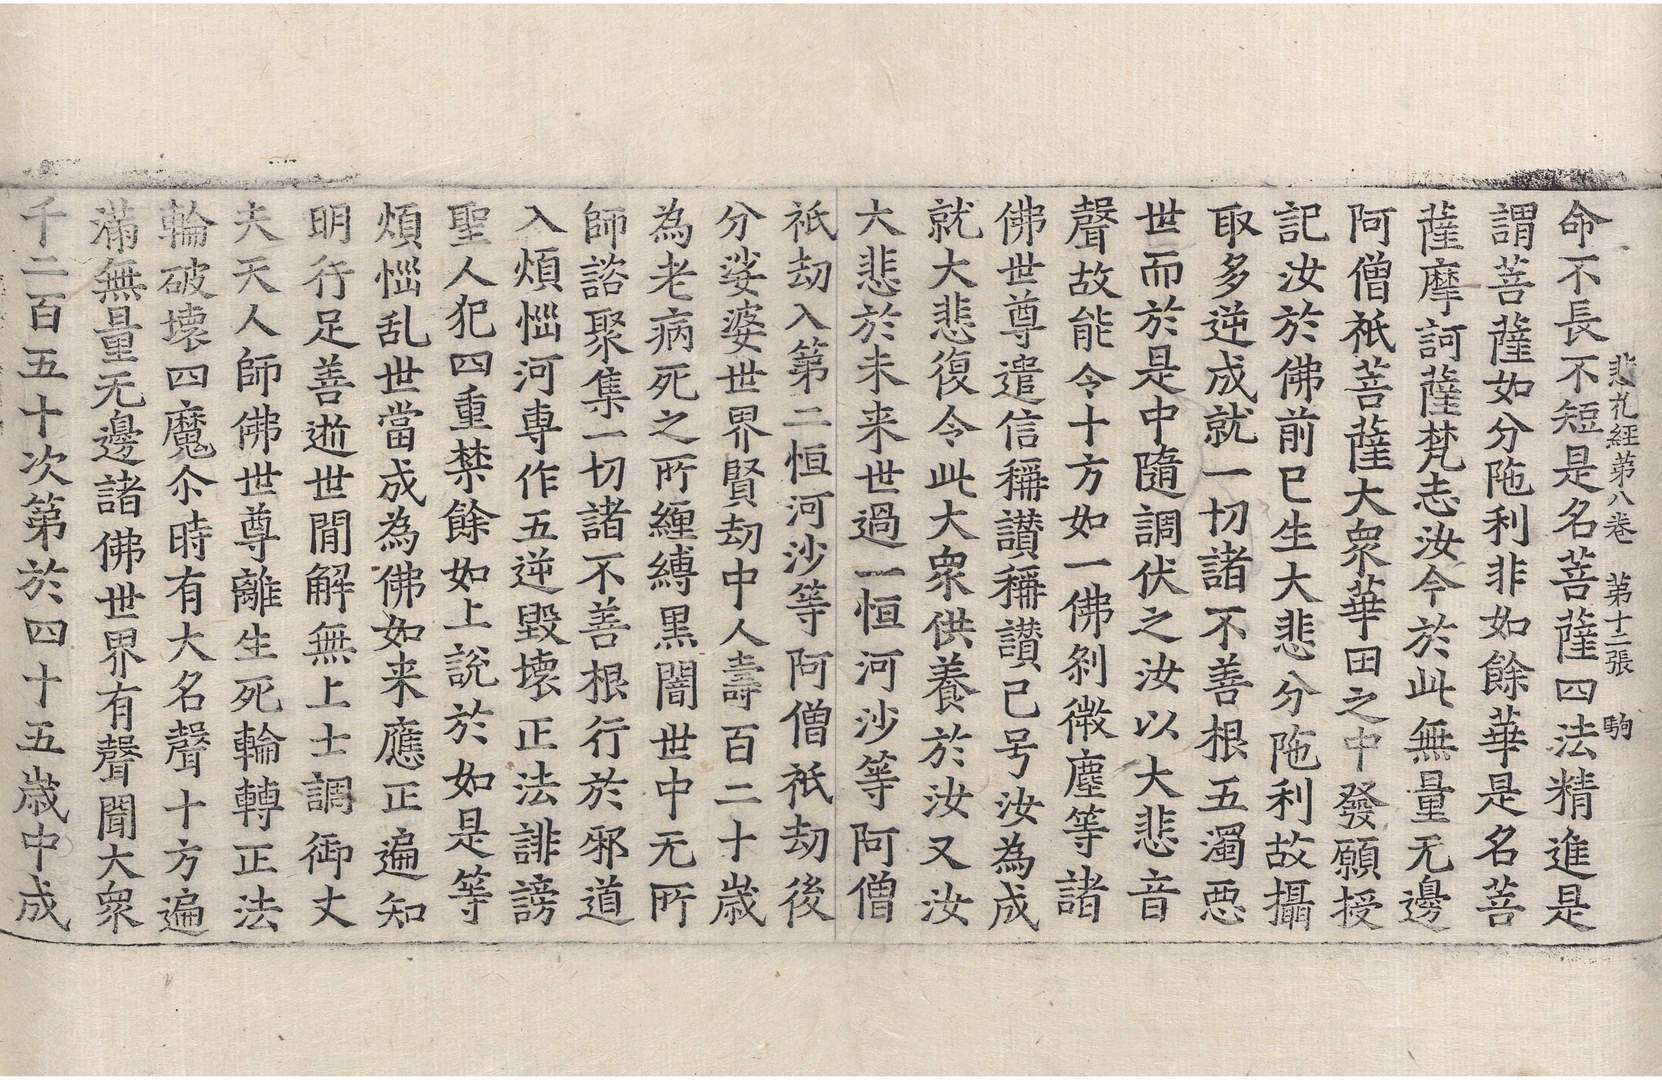 悲花經第八卷　第十二張　駒
命不長不短是名菩薩四法精進是
謂菩薩如分陁利非如餘華是名菩
薩摩訶薩梵志汝今於此無量无邊
阿僧祇菩薩大衆華田之中發願授
記汝於佛前已生大悲分陁利故攝
取多逆成就一切諸不善根五濁惡
世而於是中隨調伏之汝以大悲音
聲故能令十方如一佛刹微塵等諸
佛世尊遣信稱讃稱讃已号汝為成
就大悲復令此大衆供養於汝又汝
大悲於未来世過一恒河沙等阿僧
祇劫入第二恒河沙等阿僧祇劫後
分娑婆世界賢劫中人壽百二十歲
為老病死之所纏縛黒闇世中无所
師諮聚集一切諸不善根行於邪道
入煩惱河專作五逆毀壞正法誹謗
聖人犯四重禁餘如上說於如是等
煩惱乱世當成為佛如来應正遍知
明行足善逝世閒解無上士調御丈
夫天人師佛世尊離生死輪轉正法
輪破壞四魔尒時有大名聲十方遍
滿無量无邊諸佛世界有聲聞大衆
千二百五十次第於四十五歲中成